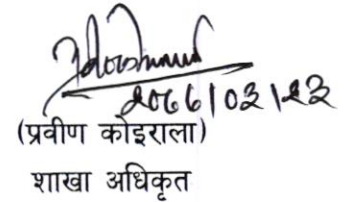 २०६६|०२|२३
(प्रवीण कोइराला)
शाखा अधिकृत